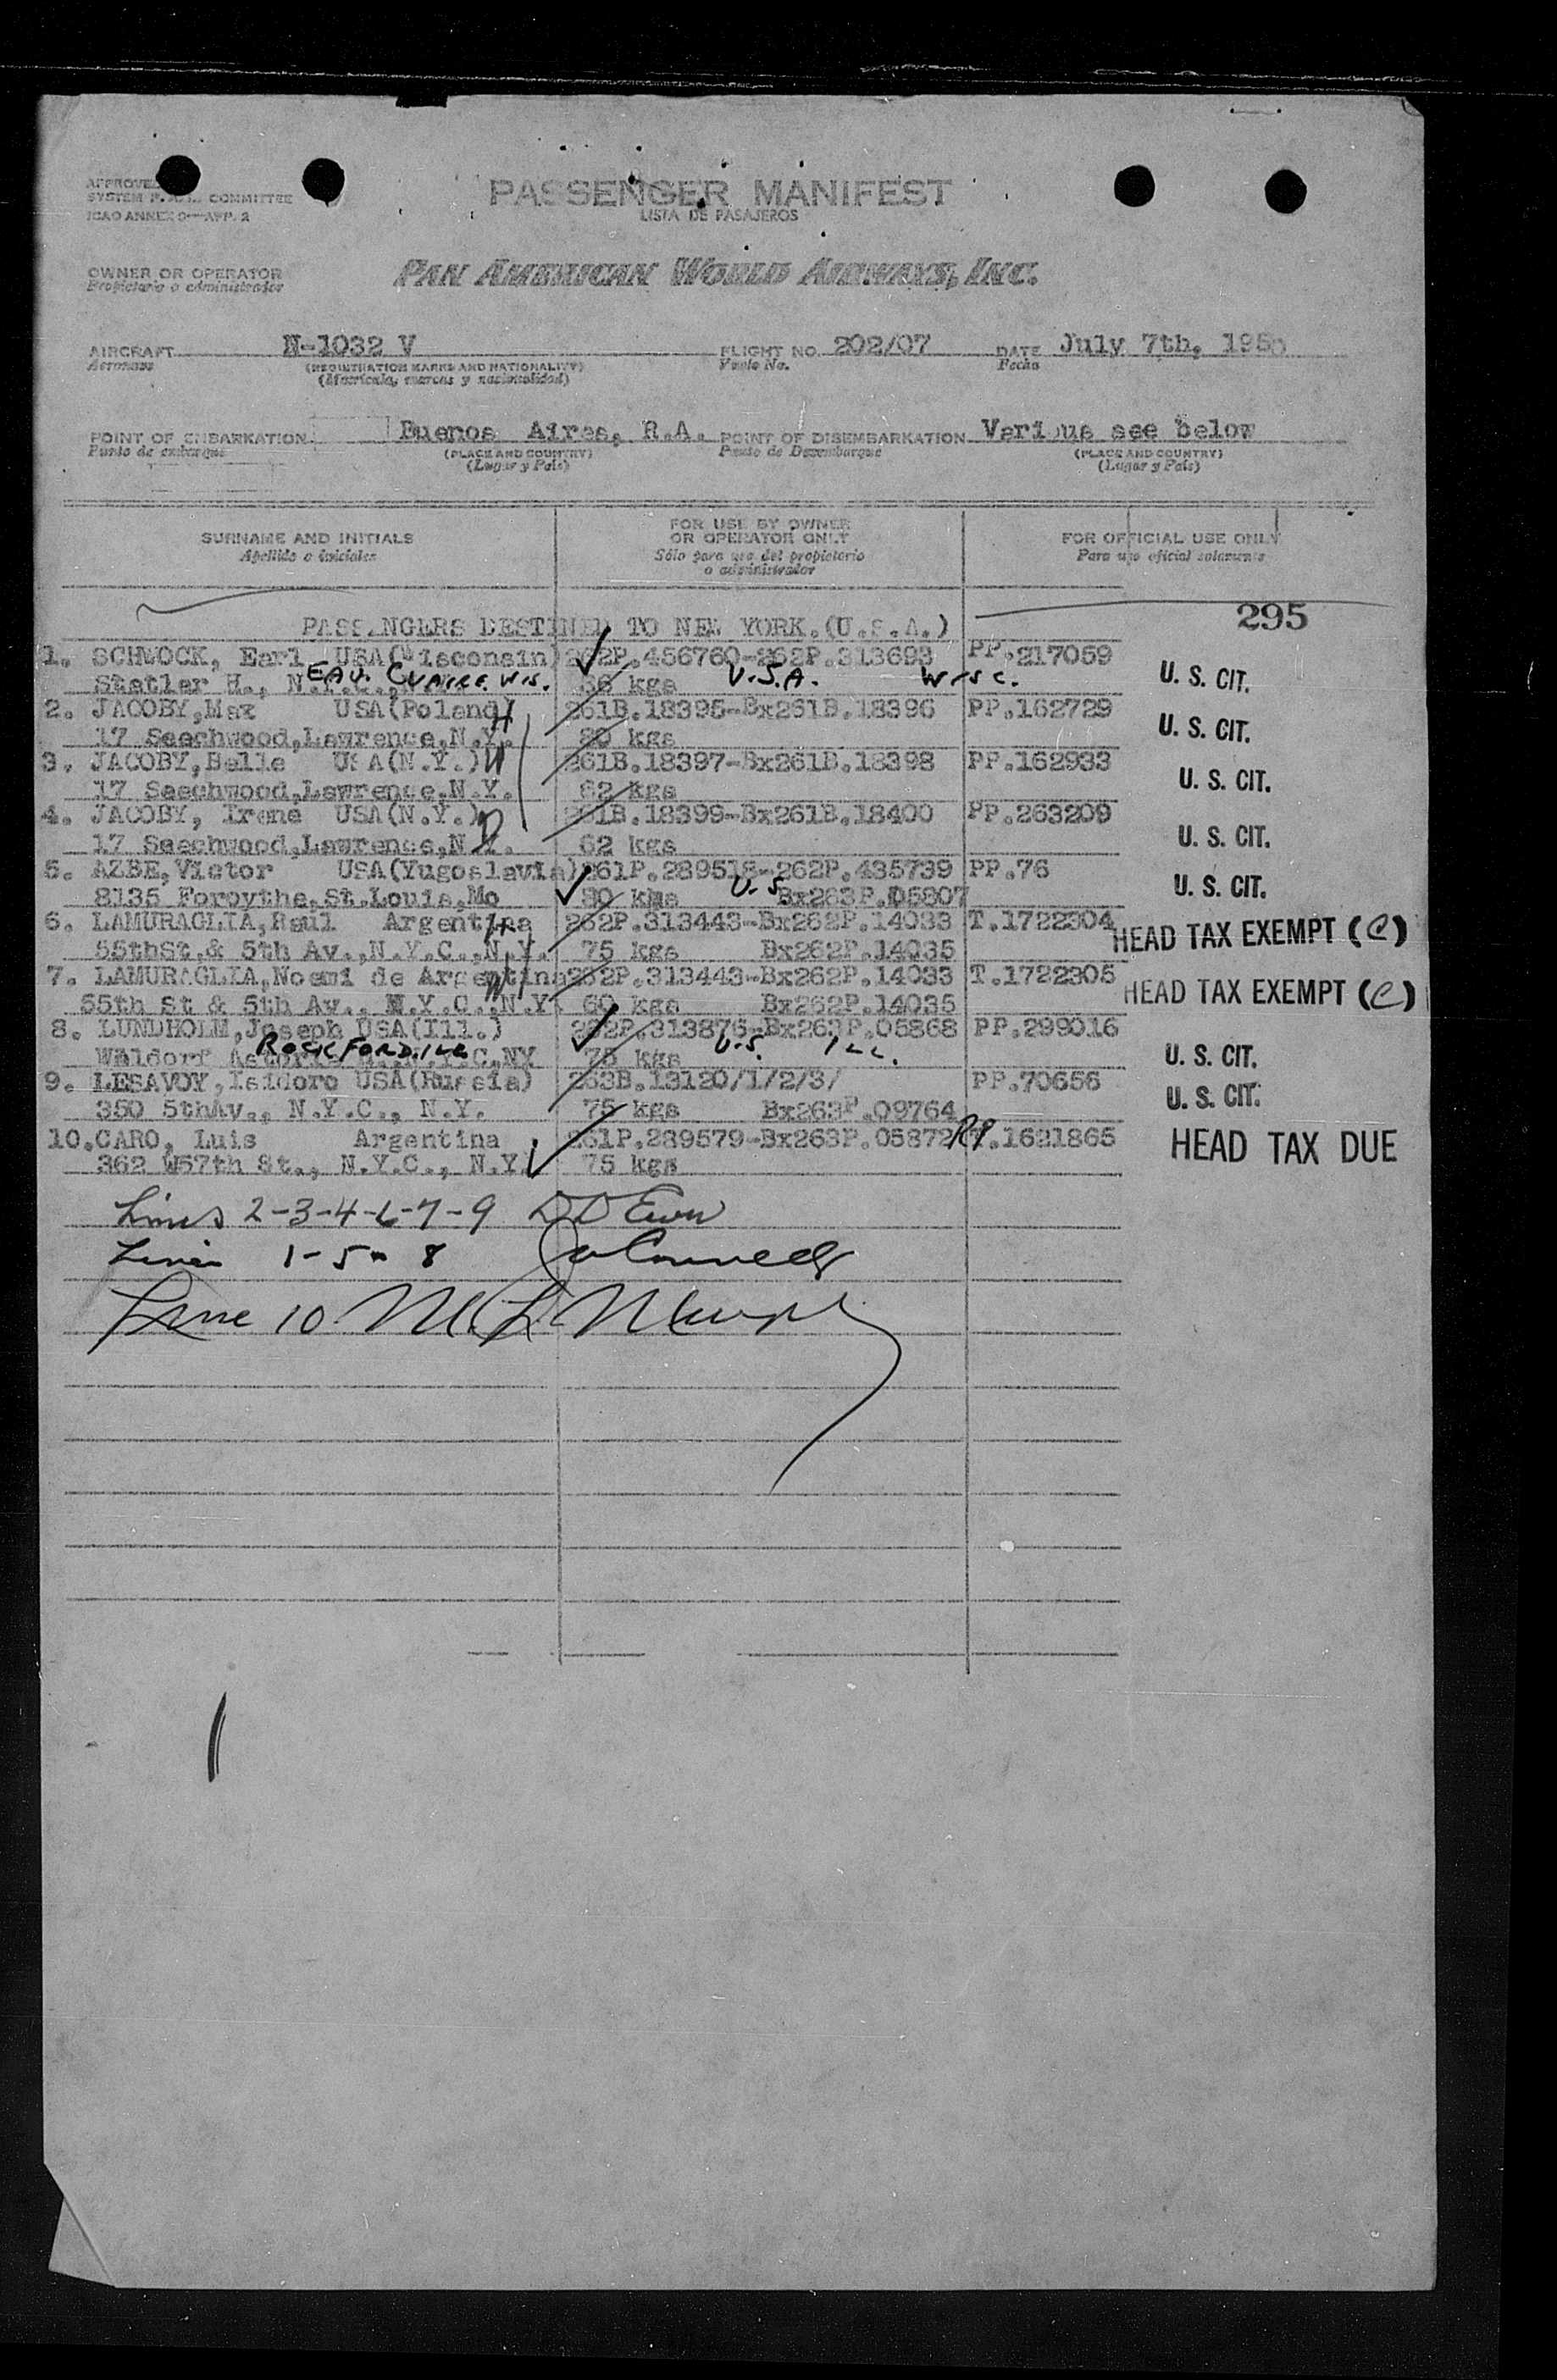 APPROVED
SYSTEM F.A.L. COMMITTEE
ICAO ANNEX 9—APP. 2
PASSENGER MANIFEST
LISTA DE PASAJEROS
OWNER OR OPERATOR
Propietario o administrador
PAN AMERICAN WORLD AIRWAYS, INC.
AIRCRAFT N-1032 V FLIGHT NO. 202/07 DATE July 7th, 1950
Aeronave (REGISTRATION MARKS AND NATIONALITY) Vuelo No. Fecha
(Matrícula, marcas y nacionalidad)
POINT OF EMBARKATION Buenos Aires, R.A. POINT OF DISEMBARKATION Various see below
Punto de embarque (PLACE AND COUNTRY) Punto de Desembarque (PLACE AND COUNTRY)
(Lugar y País) (Lugar y País)
SURNAME AND INITIALS FOR USE BY OWNER OR OPERATOR ONLY FOR OFFICIAL USE ONLY
Apellido o iniciales Sólo para uso del propietario o administrador Para uso oficial solamente
295
PASSENGERS DESTINED TO NEW YORK.(U.S.A.)
1. SCHWOCK, Earl USA(Wisconsin) 262P.456760-262P.313693 PP.217059
EAU. CLAIRE. WIS. U.S.A. WISC. U. S. CIT.
Statler H., N.Y.C., N.Y. 86 kgs
2. JACOBY,Max USA(Poland) H 261B.18395-Bx261B.18396 PP.162729
17 Saechwood,Lawrence,N.Y. 80 kgs U. S. CIT.
3. JACOBY,Belle USA(N.Y.) W 261B.18397-Bx261B.18398 PP.162933
17 Saechwood,Lawrence,N.Y. 62 kgs U. S. CIT.
4. JACOBY, Irene USA(N.Y.) D 261B.18399-Bx261B.18400 PP.263209
17 Saechwood,Lawrence,N.Y. 62 kgs U. S. CIT.
5. AZBE,Victor USA(Yugoslavia) 261P.289518-262P.435739 PP.76
8135 Forsythe,St.Louis,Mo 80 kgs U.S Bx263P.05807 U. S. CIT.
6. LAMURAGLIA,Raúl Argentina H 262P.313443-Bx262P.14033 T.1722304
55thSt,& 5th Av.,N.Y.C.,N.Y. 75 kgs Bx262P.14035 HEAD TAX EXEMPT (C)
7. LAMURAGLIA,Noemi de Argentina W 262P.313443-Bx262P.14033 T.1722305
55th St & 5th Av., N.Y.C.,N.Y. 60 kgs Bx262P.14035 HEAD TAX EXEMPT (C)
8. LUNDHOLM,Joseph USA(Ill.) 262P.313876-Bx263P.05868 PP.299016
ROCKFORD. ILL U.S. ILL. U. S. CIT.
Waldorf Astoria N.Y.C.NY 75 kgs
9. LESAVOY,Isidoro USA(Russia) 263B.13120/1/2/3/ PP.70656
350 5thAv., N.Y.C., N.Y. 75 kgs Bx263P.09764 U. S. CIT.
10.CARO, Luis Argentina 261P.289579-Bx263P.05872 RP.1621865
362 W57th St., N.Y.C., N.Y. 75 kgs HEAD TAX DUE
Lines 2-3-4-6-7-9
Lines 1-5- 8
Line 10 M. L.